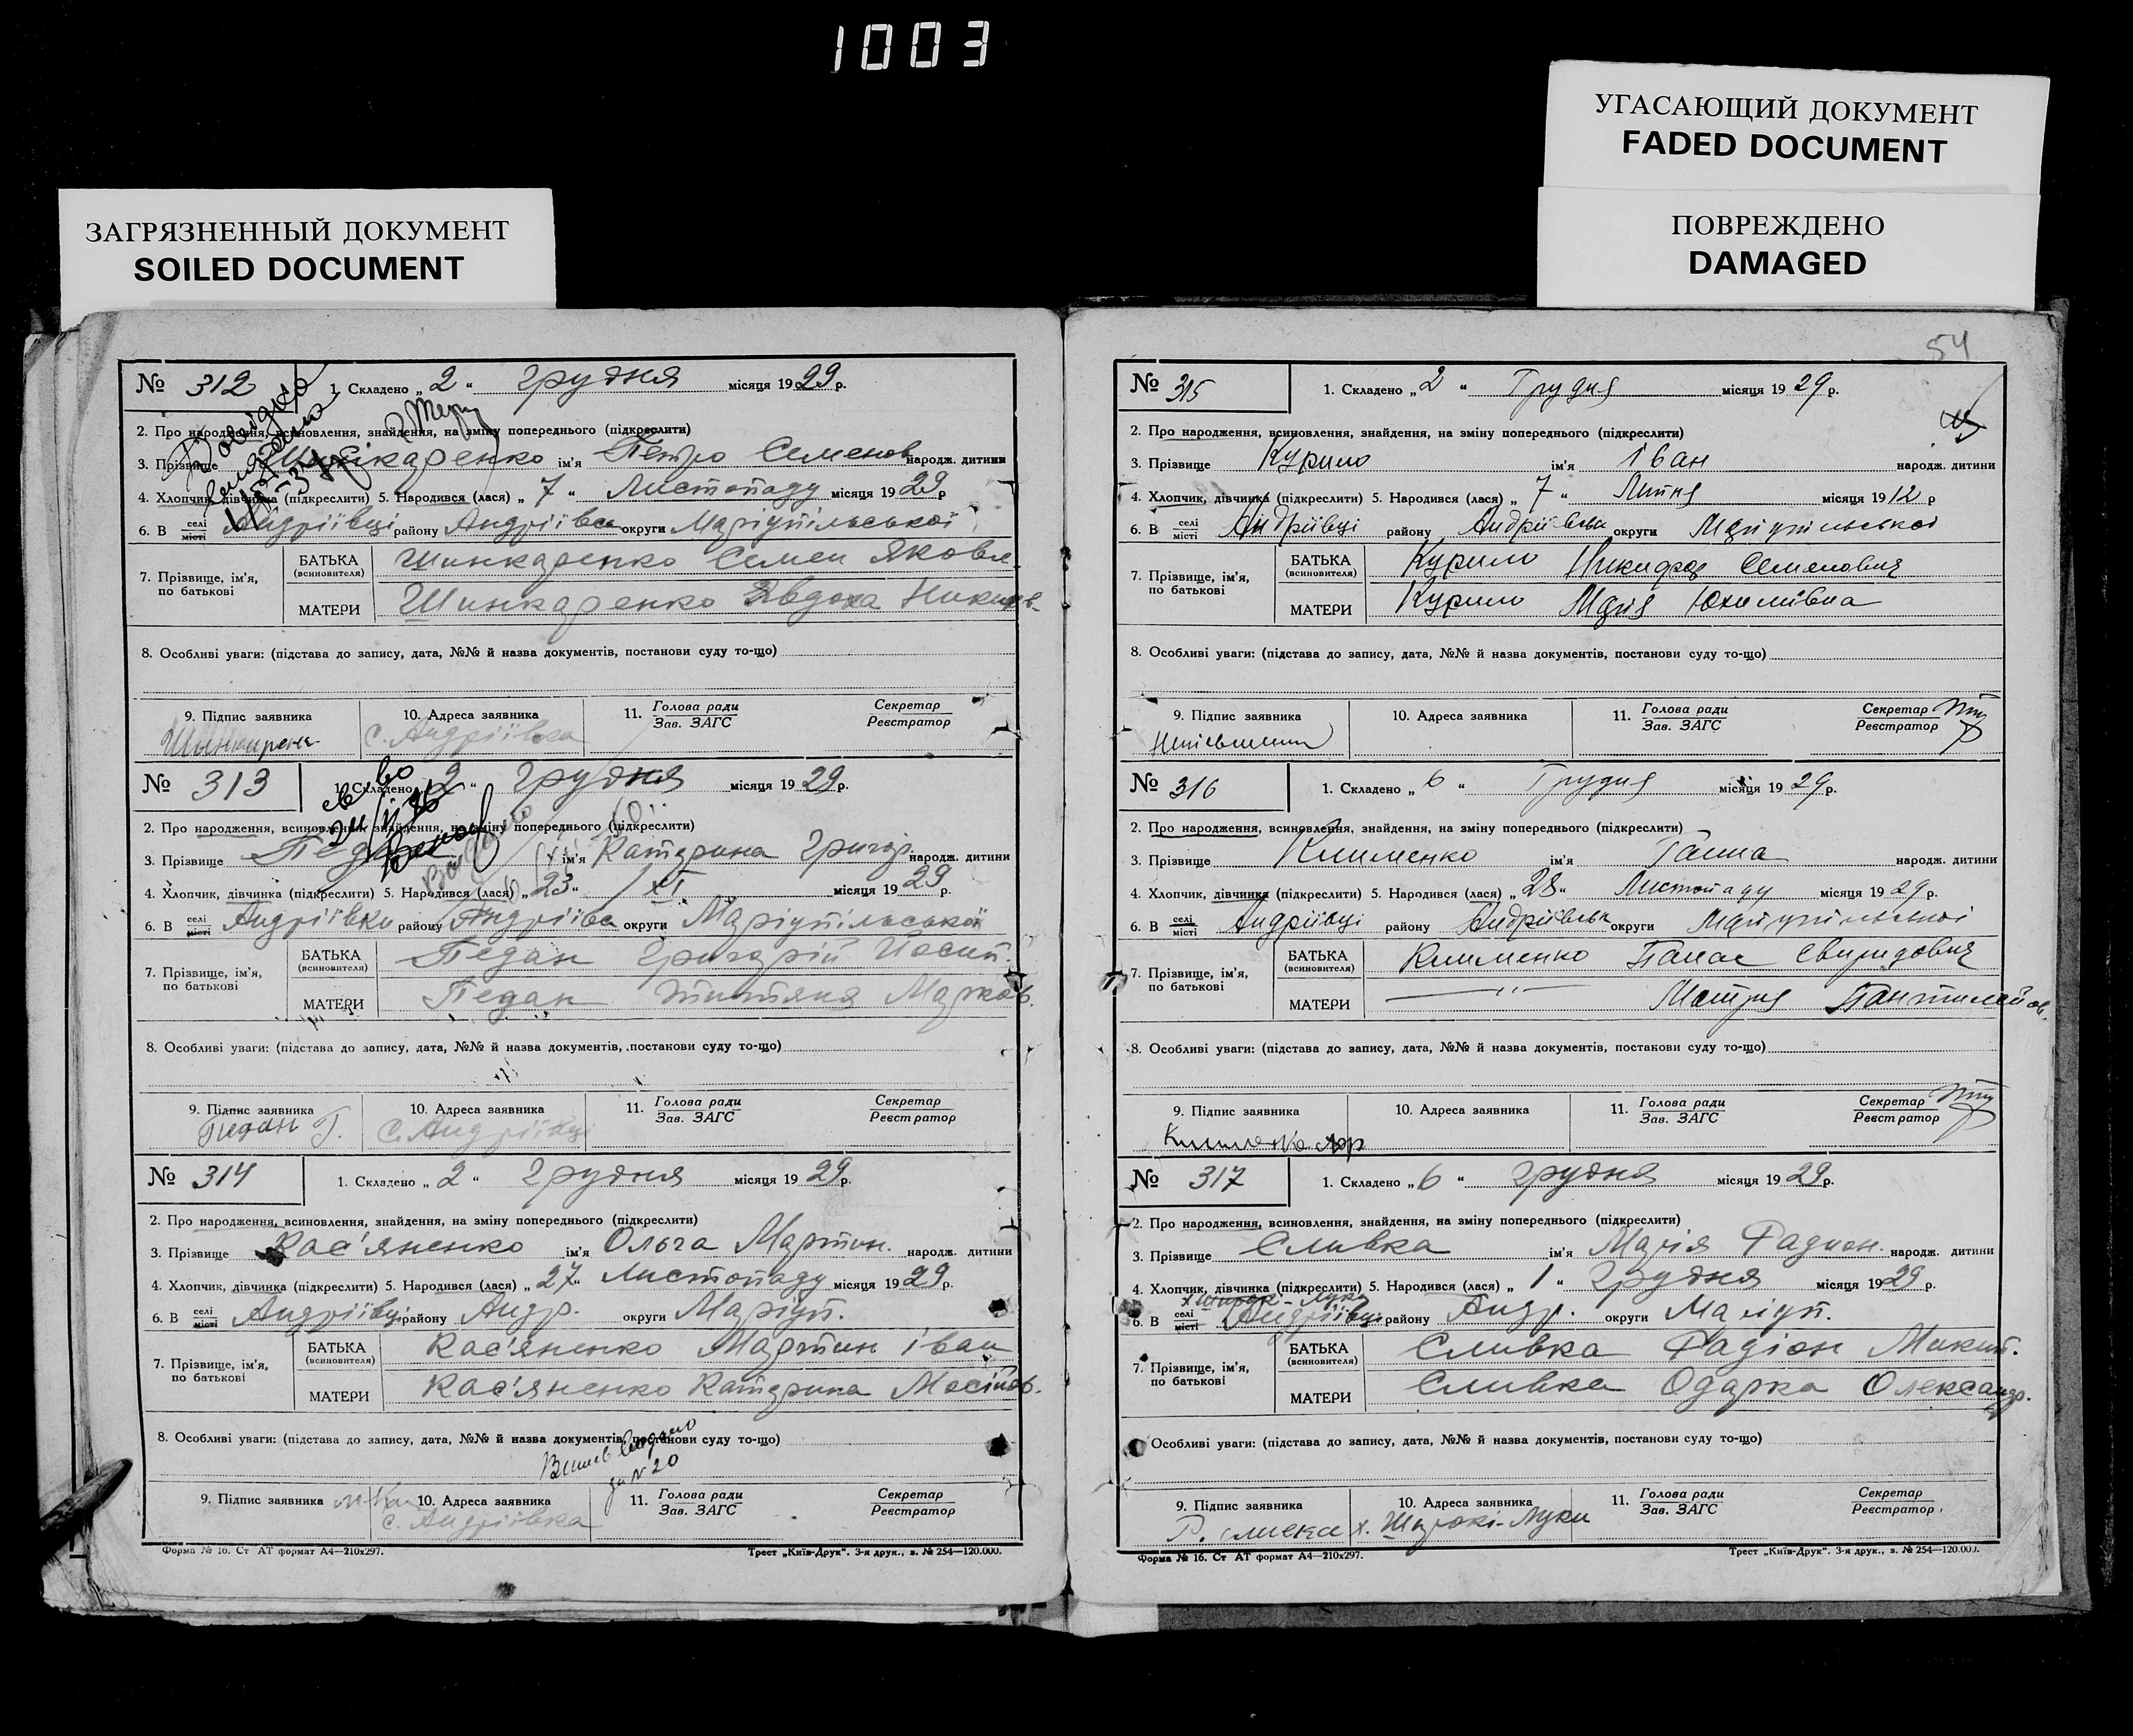 1003
УГАСАЮЩИЙ ДОКУМЕНТ
FADED DOCUMENT
ЗАГРЯЗНЕННЫЙ ДОКУМЕНТ
SOILED DOCUMENT
ПОВРЕЖДЕНО
DAMAGED
№ 312 1. Складено „2“ грудня місяця 1929 р.
Довідка
видана
2. Про народження, всиновлення, знайдення, на зміну попереднього (підкреслити)
3. Прізвище Шинкаренко ім'я Петро Семенов народж. дитини
4. Хлопчик, дівчинка (підкреслити) 5. Народився (лася) „7“ Листопаду місяця 1929 р
6. В селі місті Андріївці району Андріївсь округи Маріупільської
7. Прізвище, ім'я, по батькові
БАТЬКА (всиновителя) Шинкаренко Семен Яковл.
МАТЕРИ Шинкаренко Явдоха Никиф
8. Особливі уваги: (підстава до запису, дата, №№ й назва документів, постанови суду то-що)
9. Підпис заявника 10. Адреса заявника 11. Голова ради Зав. ЗАГС Секретар Реєстратор
Шинкарень с. Андріївка
№ 313 1. Складено „2“ грудня місяця 1929 р.
2. Про народження, всиновлення, знайдення, на зміну попереднього (підкреслити)
3. Прізвище Педан ім'я Катерина Григор. народж. дитини
4. Хлопчик, дівчинка (підкреслити) 5. Народився (лася) „23“ / XI місяця 1929 р.
6. В селі місті Андріївки району Андріївс округи Маріупільської
7. Прізвище, ім'я, по батькові
БАТЬКА (всиновителя) Педан Григорій Йосип.
МАТЕРИ Педан Титяна Марков.
8. Особливі уваги: (підстава до запису, дата, №№ й назва документів, постанови суду то-що)
9. Підпис заявника 10. Адреса заявника 11. Голова ради Зав. ЗАГС Секретар Реєстратор
Педан Г. С. Андріївці
№ 314 1. Складено „2“ грудня місяця 1929 р.
2. Про народження, всиновлення, знайдення, на зміну попереднього (підкреслити)
3. Прізвище Кас'яненко ім'я Ольга Мартин. народж. дитини
4. Хлопчик, дівчинка (підкреслити) 5. Народився (лася) „27“ Листопаду місяця 1929 р.
6. В селі місті Андріївці району Андр. округи Маріуп.
7. Прізвище, ім'я, по батькові
БАТЬКА (всиновителя) Кас'яненко Мартин Іван
МАТЕРИ Кас'яненко Катерина Мосійов.
8. Особливі уваги: (підстава до запису, дата, №№ й назва документів, постанови суду то-що)
видано
за № 20
9. Підпис заявника 10. Адреса заявника 11. Голова ради Зав. ЗАГС Секретар Реєстратор
с. Андріївка
Форма № 16. Ст АТ формат А4—210х297. Трест „Київ-Друк“. 3-я друк., в. № 254—120.000.
54
№ 315 1. Складено „2“ Грудня місяця 1929 р.
2. Про народження, всиновлення, знайдення, на зміну попереднього (підкреслити)
3. Прізвище Курило ім'я Іван народж. дитини
4. Хлопчик, дівчинка (підкреслити) 5. Народився (лася) „7“ Липня місяця 1912 р
6. В селі місті Андріївці району Андріївськ округи Маріупільської
7. Прізвище, ім'я, по батькові
БАТЬКА (всиновителя) Курило Никифор Семенович
МАТЕРИ Курило Марія Юхимівна
8. Особливі уваги: (підстава до запису, дата, №№ й назва документів, постанови суду то-що)
9. Підпис заявника 10. Адреса заявника 11. Голова ради Зав. ЗАГС Секретар Реєстратор
№ 316 1. Складено „6“ Грудня місяця 1929 р.
2. Про народження, всиновлення, знайдення, на зміну попереднього (підкреслити)
3. Прізвище Клименко ім'я Ганна народж. дитини
4. Хлопчик, дівчинка (підкреслити) 5. Народився (лася) „28“ Листопаду місяця 1929 р.
6. В селі місті Андріївці району Андріївськ округи Маріупільської
7. Прізвище, ім'я, по батькові
БАТЬКА (всиновителя) Клименко Панас Свиридович
МАТЕРИ —"— Мотря Пантилейов.
8. Особливі уваги: (підстава до запису, дата, №№ й назва документів, постанови суду то-що)
9. Підпис заявника 10. Адреса заявника 11. Голова ради Зав. ЗАГС Секретар Реєстратор
№ 317 1. Складено „6“ грудня місяця 1929 р.
2. Про народження, всиновлення, знайдення, на зміну попереднього (підкреслити)
3. Прізвище Сливка ім'я Марія Радион. народж. дитини
4. Хлопчик, дівчинка (підкреслити) 5. Народився (лася) „1“ Грудня місяця 1929 р.
х Широкі-Луки
6. В селі місті Андріївці району Андр. округи Маріуп.
7. Прізвище, ім'я, по батькові
БАТЬКА (всиновителя) Сливка Радіон Микит.
МАТЕРИ Сливка Одарка Олександр.
Особливі уваги: (підстава до запису, дата, №№ й назва документів, постанови суду то-що)
9. Підпис заявника 10. Адреса заявника 11. Голова ради Зав. ЗАГС Секретар Реєстратор
Р. Сливка х. Широкі-Луки
Форма № 16. Ст АТ формат А4—210х297. Трест „Київ-Друк“. 3-я друк., в. № 254—120.000.